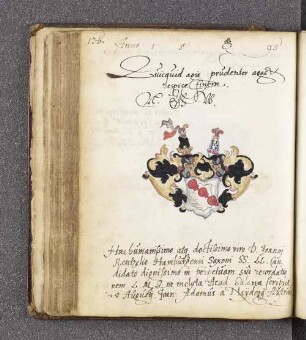 136. Anno 1 5 95
Quicquid agis prudenter agas &
respice finem.
Hoc humanissimo atq; doctissimo viro D. Joanni
Rentzelio Hamburgensi Saxoni SS. LL. can
didato dignissimo in perpetuam sui recordatio
nem L. M. Q. in inclyta Acad.
Joan. Adamus a